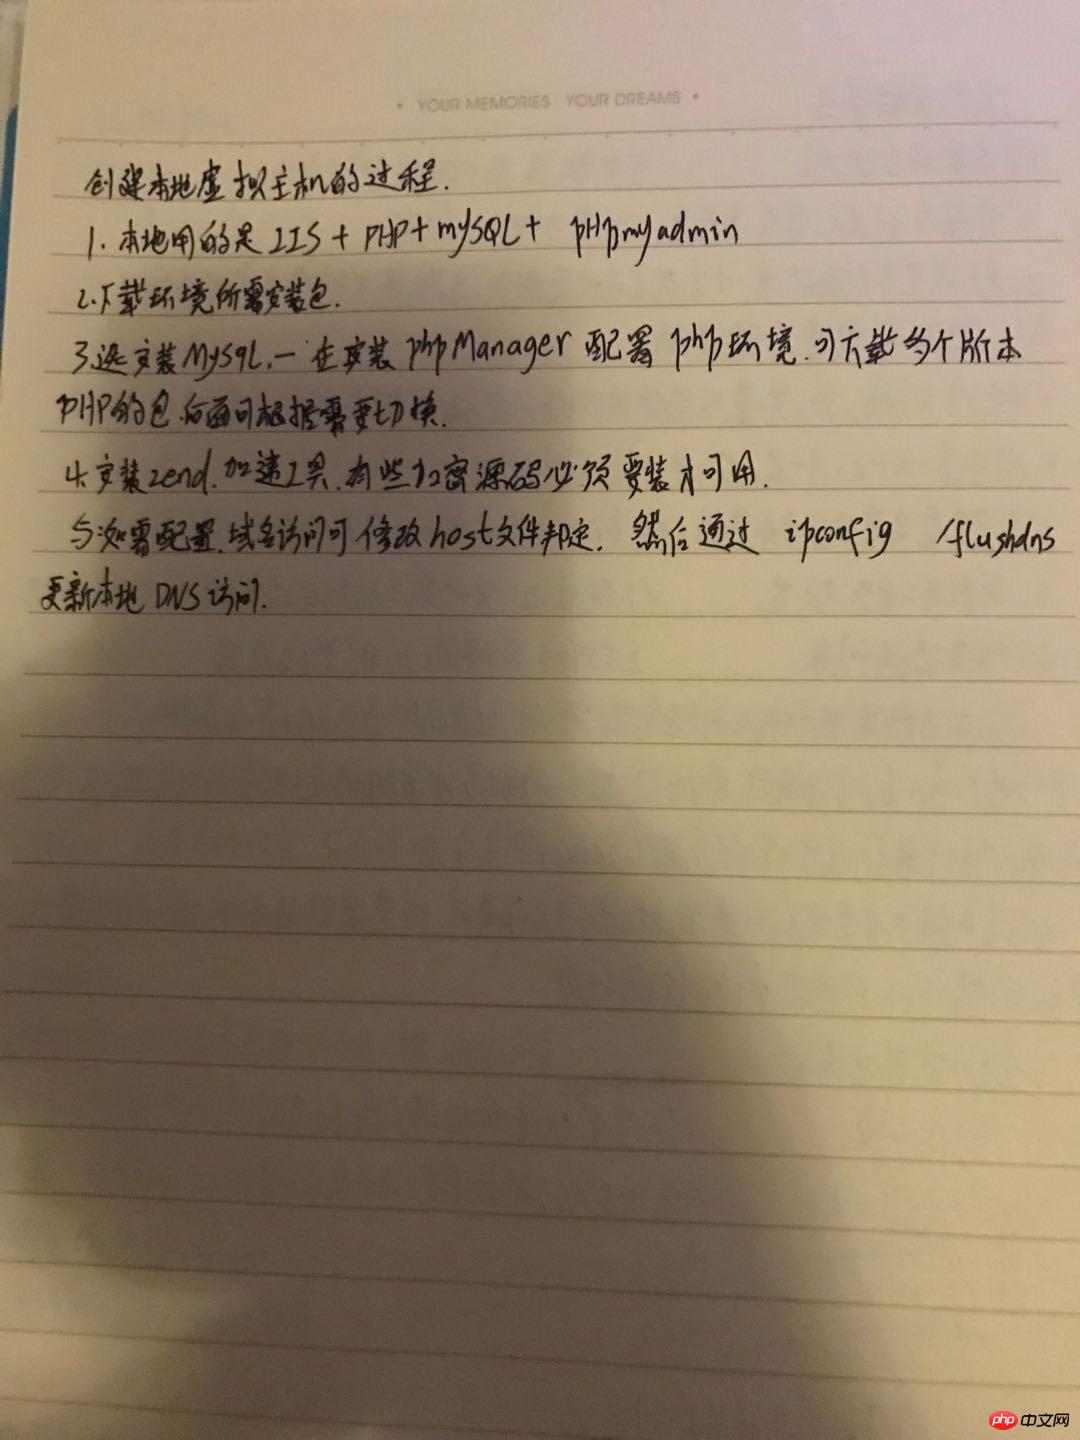 • YOUR MEMORIES YOUR DREAMS •
创建本地虚拟主机的过程.
1. 本地用的是 IIS + PHP + mySQL + pHpmyadmin
2.下载环境所需安装包.
3.选安装MySQL, 在安装 phpManager 配置 php环境.可下载多个版本
PHP的包.后面可根据需要切换.
4.安装zend.加速工具.有些加密源码必须要装才可用.
5.如需配置.域名访问可修改host文件邦定. 然后通过 ipconfig /flushdns
更新本地DNS访问.
php中文网